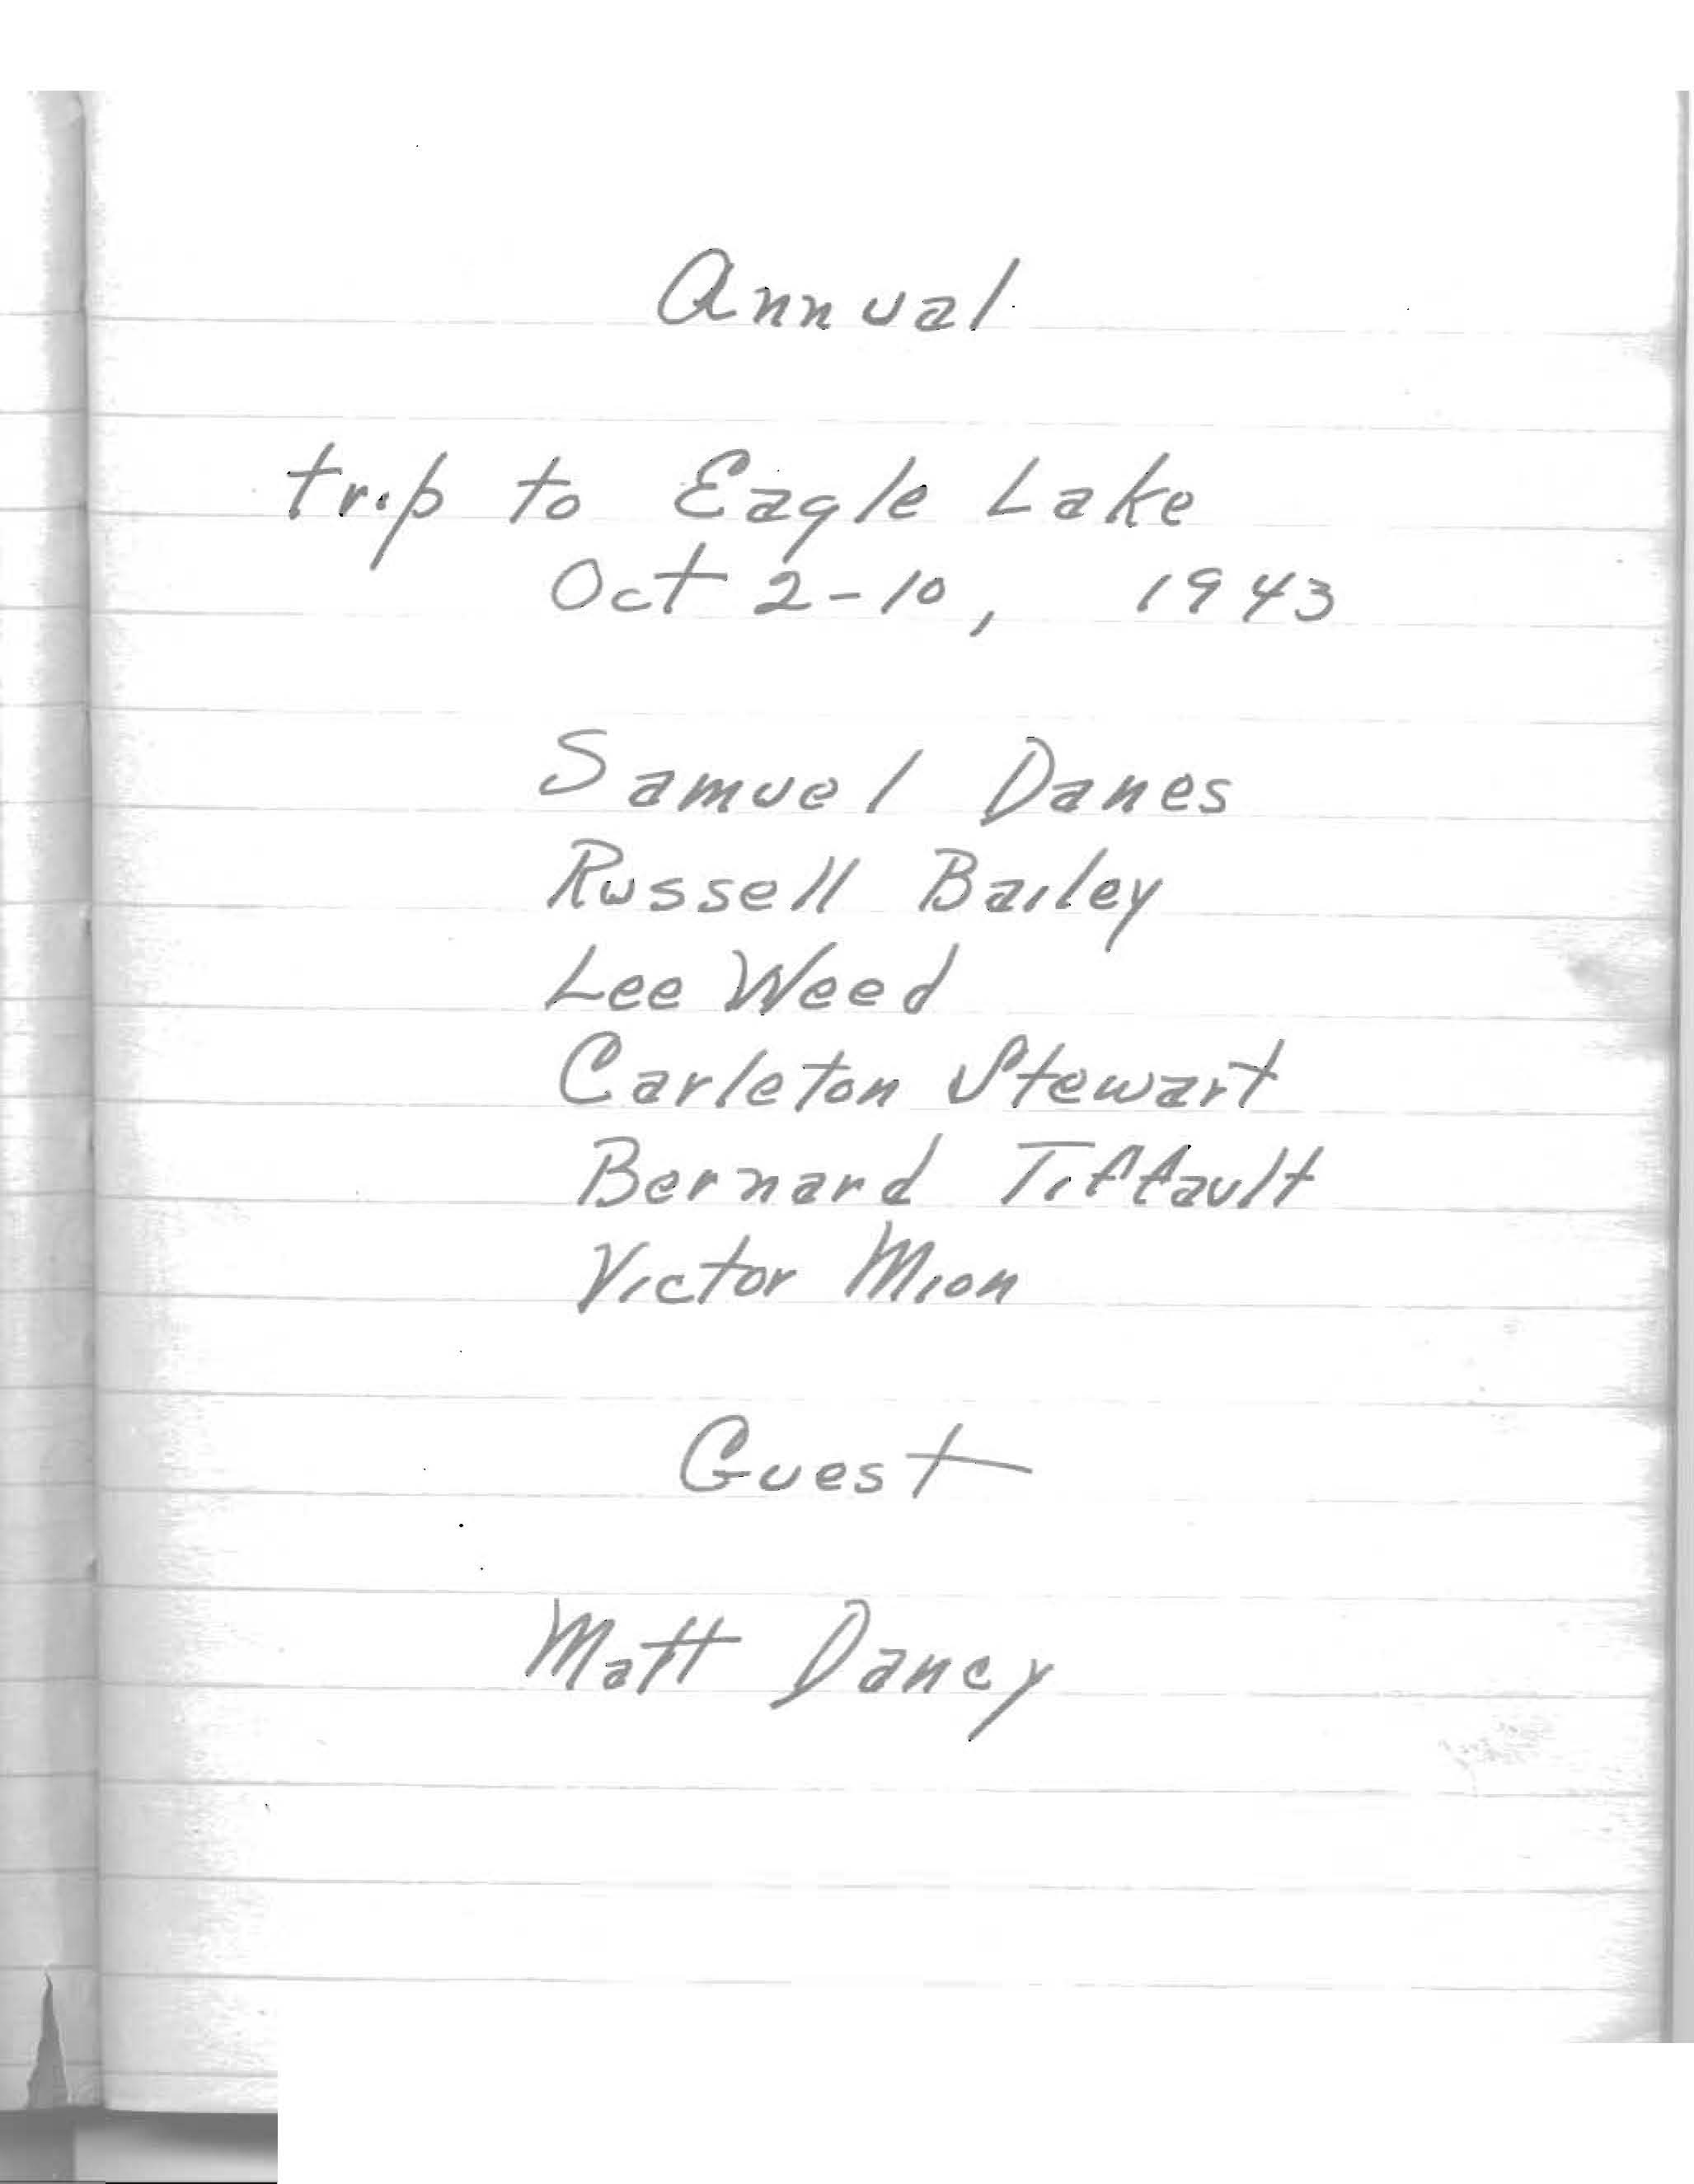 Annual
trip to Eagle Lake
Oct 2-10, 1943
Samuel Danes
Russell Bailey
Lee Weed
Carleton Stewart
Bernard Tiffault
Victor Mion
Guest
Matt Dancy